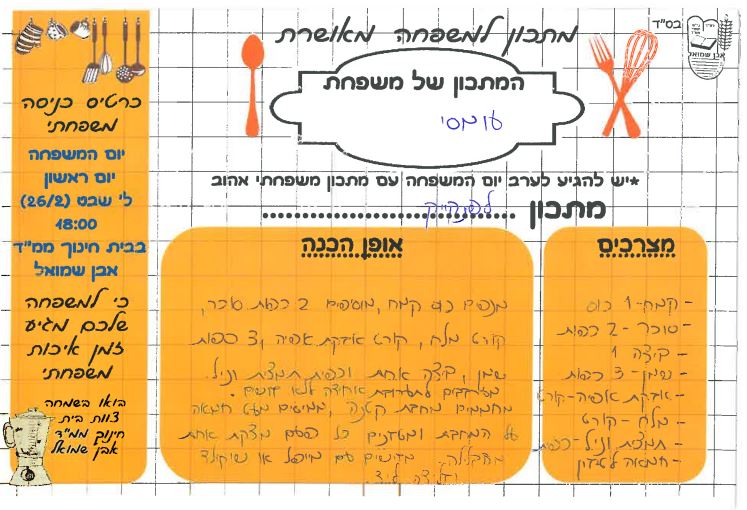 בס"ד
אבן שמואל
מתכון למשפחה מאושרת
המתכון של משפחת
עומסי
*יש להגיע לערב יום המשפחה עם מתכון משפחתי אהוב
מתכון לפנקייק
מצרכים
- קמח - 1 כוס
- סוכר - 2 כפות
- ביצה 1
- שמן - 3 כפות
- אבקת אפיה - קורט
- מלח - קורט
- תמצת וניל - כפית
- חמאה לטיגון
אופן הכנה
מנפים כוס קמח, מוסיפים 2 כפות סוכר,
קורט מלח, קורט אבקת אפיה, 3 כפות
שמן, ביצה אחת וכפית תמצת וניל.
מערבבים לתערובת אחידה ללא גושים.
מחממים מחבת קטנה, ממיסים מעט חמאה
על המחבת ומטגנים כל פעם מצקת אחת
מהבלילה. מגישים עם מייפל או שוקולד
כרטיס כניסה
משפחתי
יום המשפחה
יום ראשון
ל' שבט (26/2)
18:00
בבית חינוך ממ"ד
אבן שמואל
כי למשפחה
שלכם מגיע
זמן איכות
משפחתי
בואו בשמחה
צוות בית
חינוך ממ"ד
אבן שמואל